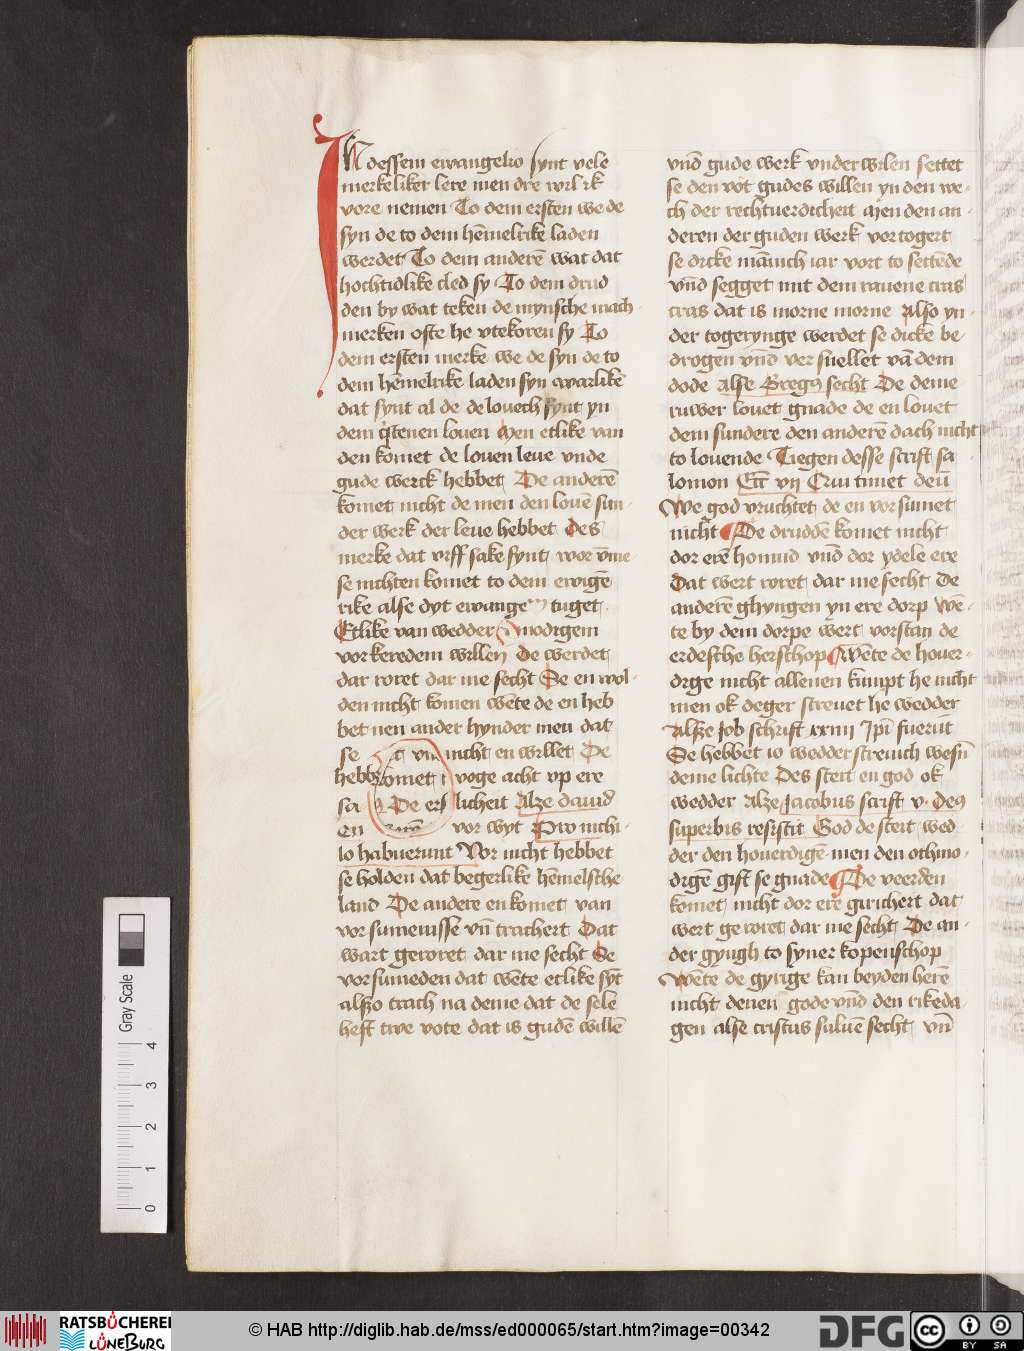 In dessem ewangelio synt vele
merkeliker lere men dre wil ik
vore nemen To dem ersten we de
syn de to dem hēmelrike laden
werdet To dem anderē wat dat
hochtidlike cled sy To dem drud
den by wat teken de mynsche mach
merken ofte he vtekoren sy To
dem ersten merke we de syn de to
dem hēmelrike laden syn warlike
dat synt al de de louech synt yn
dem louen Men etlike van
den komet de louen leue vnde
gude werck hebbet De anderē
komet nicht de men den louē sun
der werk der leue hebbet Des
merke dat vyff sake synt
se nichten komet to dem ewigē
rike alse dyt ewange tuget
Etlike van wedder modigem
vorkeredem willen De werdet
dar roret dar me secht Se en wol
den nicht komen wēte de en heb
bet nen ander hynder men dat
se nicht en willet De
komet voge acht vp ere
sa De ers licheit Alze dauid
en vor wyt Pro nichi
lo habuerunt Vor nicht hebbet
se holden dat begerlike hēmelsche
land De andere en komet van
vorsumenisse vn̄ tracheit Dat
wart geroret dar me secht Se
vorsumeden dat wēte etlike syt
alzo trach na deme dat de selē
heft twe vote dat is gudē willē
vnd gude werk vnderwilen settet
se den vot gudes willen yn den we
ch der rechtuerdicheit Men den an
deren der guden werk vortogert
se dicke mānich iar vort to settēde
vnd segget mit dem rauene cras
cras dat is morne morne Also yn
der togerynge werdet se dicke be
drogen vnd ver suellet vā dem
dode alse Gregꝰ secht De deme
ruwer louet gnade de en louet
dem sundere den anderē dach nicht
to louende Tiegen desse scrift sa
lomon Ecc̄ vij Qui timet deū
We god vruchtet de en vorsumet
nicht De druddē komet nicht
dor erē homud vnd dor ydele ere
Dat wert roret dar me secht De
anderē ghyngen yn ere dorp Wē
te by dem dorpe wert vorstan de
erdesche herschop Wēte de houer
dige nicht allenen kumpt he nicht
men ok deger streuet he wedder
Alze Job schrift xxiiii Ipi fuerūt
Se hebbet io wedder streuich wesn̄
deme lichte Des steit en god ok
wedder Alze Jacobus scrift v. Deꝰ
superbis resistit God de steit wed
der den houerdigē men den othmo
digē gift se gnade De veerden
komet nicht dor ere giricheit dat
wert geroret dar me secht De an
der gyngh to syner kopenschop
Wēte de gyrige kan beyden herē
nicht denen gode vnd den rikeda
gen alse cristus suluē secht vn̄
Gray Scale
4
3
2
1
0
RATSBÜCHEREI
LÜNEBURG
© HAB http://diglib.hab.de/mss/ed000065/start.htm?image=00342
DFG
cc
BY SA